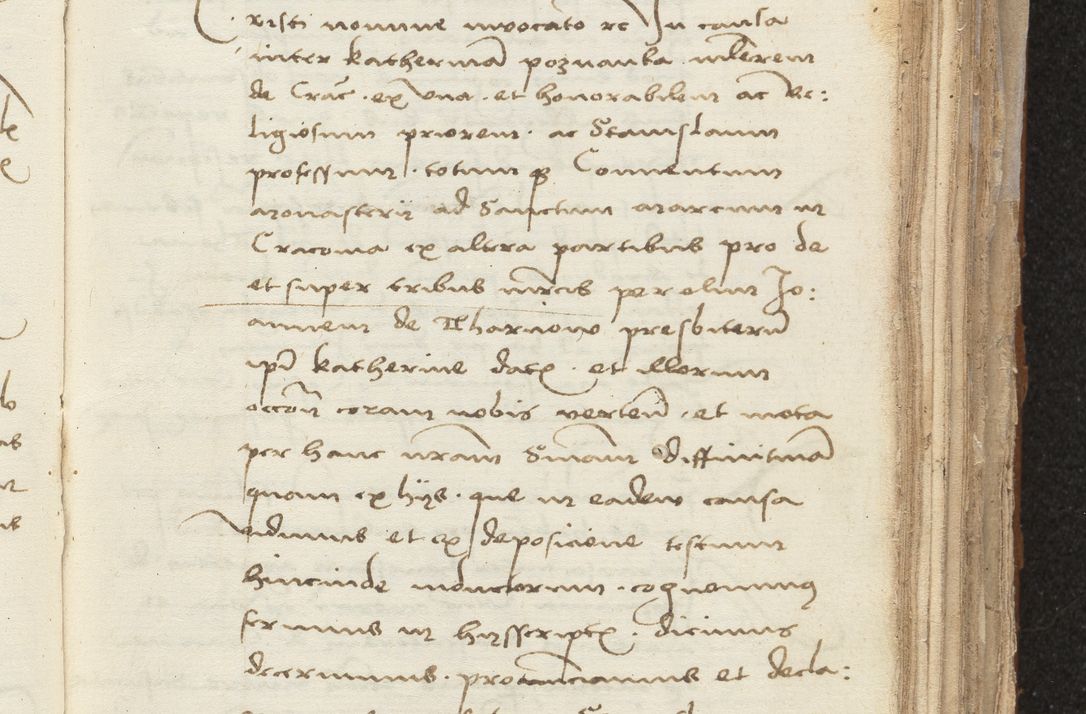 risti nomine invocato rc In causa
inter Katherinā poznanka mlērem
de Crac̄ . ex una . et honorabilem ac Re:
ligiosum priorem . ac Stanislaum
professum . totum qȝ Conuentum
monasterij ad Sanctum marcum in
Cracouia ex altera partibus pro de
et super tribus mrcis per olim Jo:
annem de Tharnow presbiterū
ipi Katherine datꝭ . et illorum
occōn coram nobis verteñ . et mota
per hanc nram Smam diffinitiuā
quam ex hijs . que in eadem causa
vidimus et ex deposicione testium
hincinde inductorum . cognouimus
ferimus in hijsscriptꝭ . dicimus
decernimus . pronunciamus et decla: